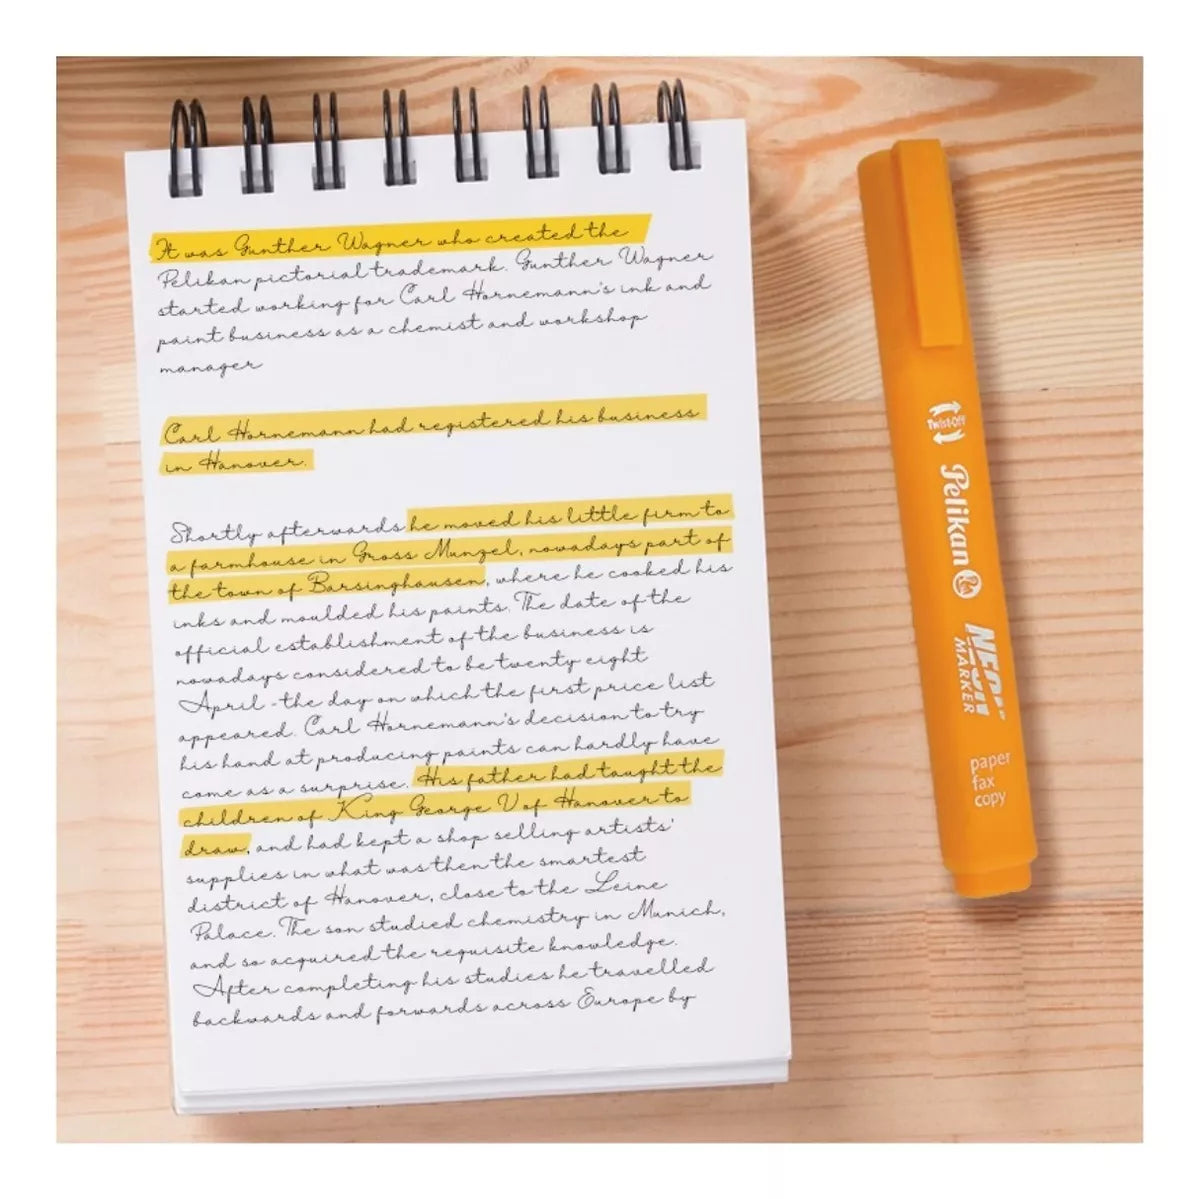 It was Gunther Wagner who created the
Pelikan pictorial trademark. Gunther Wagner
started working for Carl Hornemann's ink and
paint business as a chemist and workshop
manager
Carl Hornemann had registered his business
in Hanover.
Shortly afterwards he moved his little firm to
a farmhouse in Gross Munzel, nowadays part of
the town of Barsinghausen, where he cooked his
inks and moulded his paints. The date of the
official establishment of the business is
nowadays considered to be twenty eight
April - the day on which the first price list
appeared. Carl Hornemann's decision to try
his hand at producing paints can hardly have
come as a surprise. His father had taught the
children of King George V of Hanover to
draw, and had kept a shop selling artists'
supplies in what was then the smartest
district of Hanover, close to the Leine
Palace. The son studied chemistry in Munich,
and so acquired the requisite knowledge.
After completing his studies he travelled
backwards and forwards across Europe by
Twist-Off
Pelikan
NEON
MARKER
paper
fax
copy